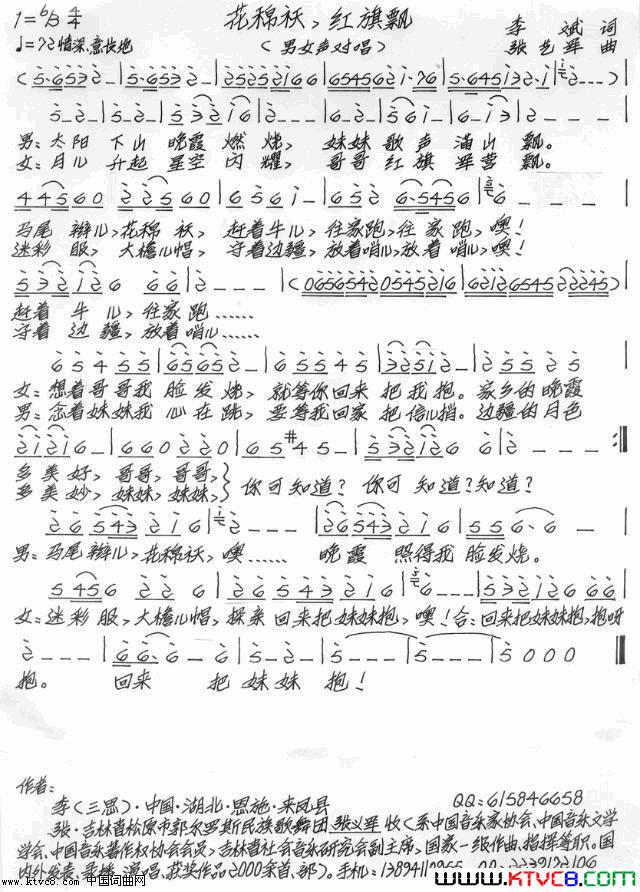 1=♭B 4/4
花棉袄,红旗飘
李 斌 词
♩=72 情深、意长地
(男女声对唱)
张艺军 曲
男:太阳 下山 晚霞 燃烧, 妹妹 歌声 满山 飘。
女:月儿 升起 星空 闪耀, 哥哥 红旗 军营 飘。
马尾 辫儿,花棉 袄, 赶着牛儿,往家跑,往 家跑,噢!
迷彩 服, 大檐儿帽, 守着边疆,放着哨儿,放着 哨儿,噢!
赶着 牛 儿,往家跑……
守着 边 疆,放着哨儿……
女:想着哥哥我 脸 发 烧, 就等你回来 把 我 抱。家乡的晚霞
男:念着妹妹我 心 在 跳, 要等我回家 把信儿捎。边疆的月色
多 美 好,哥哥,哥哥,
多 美 妙,妹妹,妹妹,
你可知道? 你可 知道?知道?
男:马尾 辫儿,花棉袄,噢…… 晚霞 照得我 脸发烧。
女:迷彩 服,大檐儿帽,探亲 回来把妹妹抱,噢!合:回来把妹妹抱,抱呀
抱。 回来 把 妹 妹 抱!
作者:
李(三思)·中国·湖北·恩施·来凤县 QQ:615846658
张·吉林省松原市郭尔罗斯民族歌舞团 张义军 收(系中国音乐家协会、中国音乐文学
学会、中国音乐著作权协会会员,吉林省社会音乐研究会副主席。国家一级作曲、指挥等职。国
内外发表、录播、演唱、获奖作品2000余首、部)。手机:
www.ktvc8.com 中国词曲网
WWW.KTVC8.COM